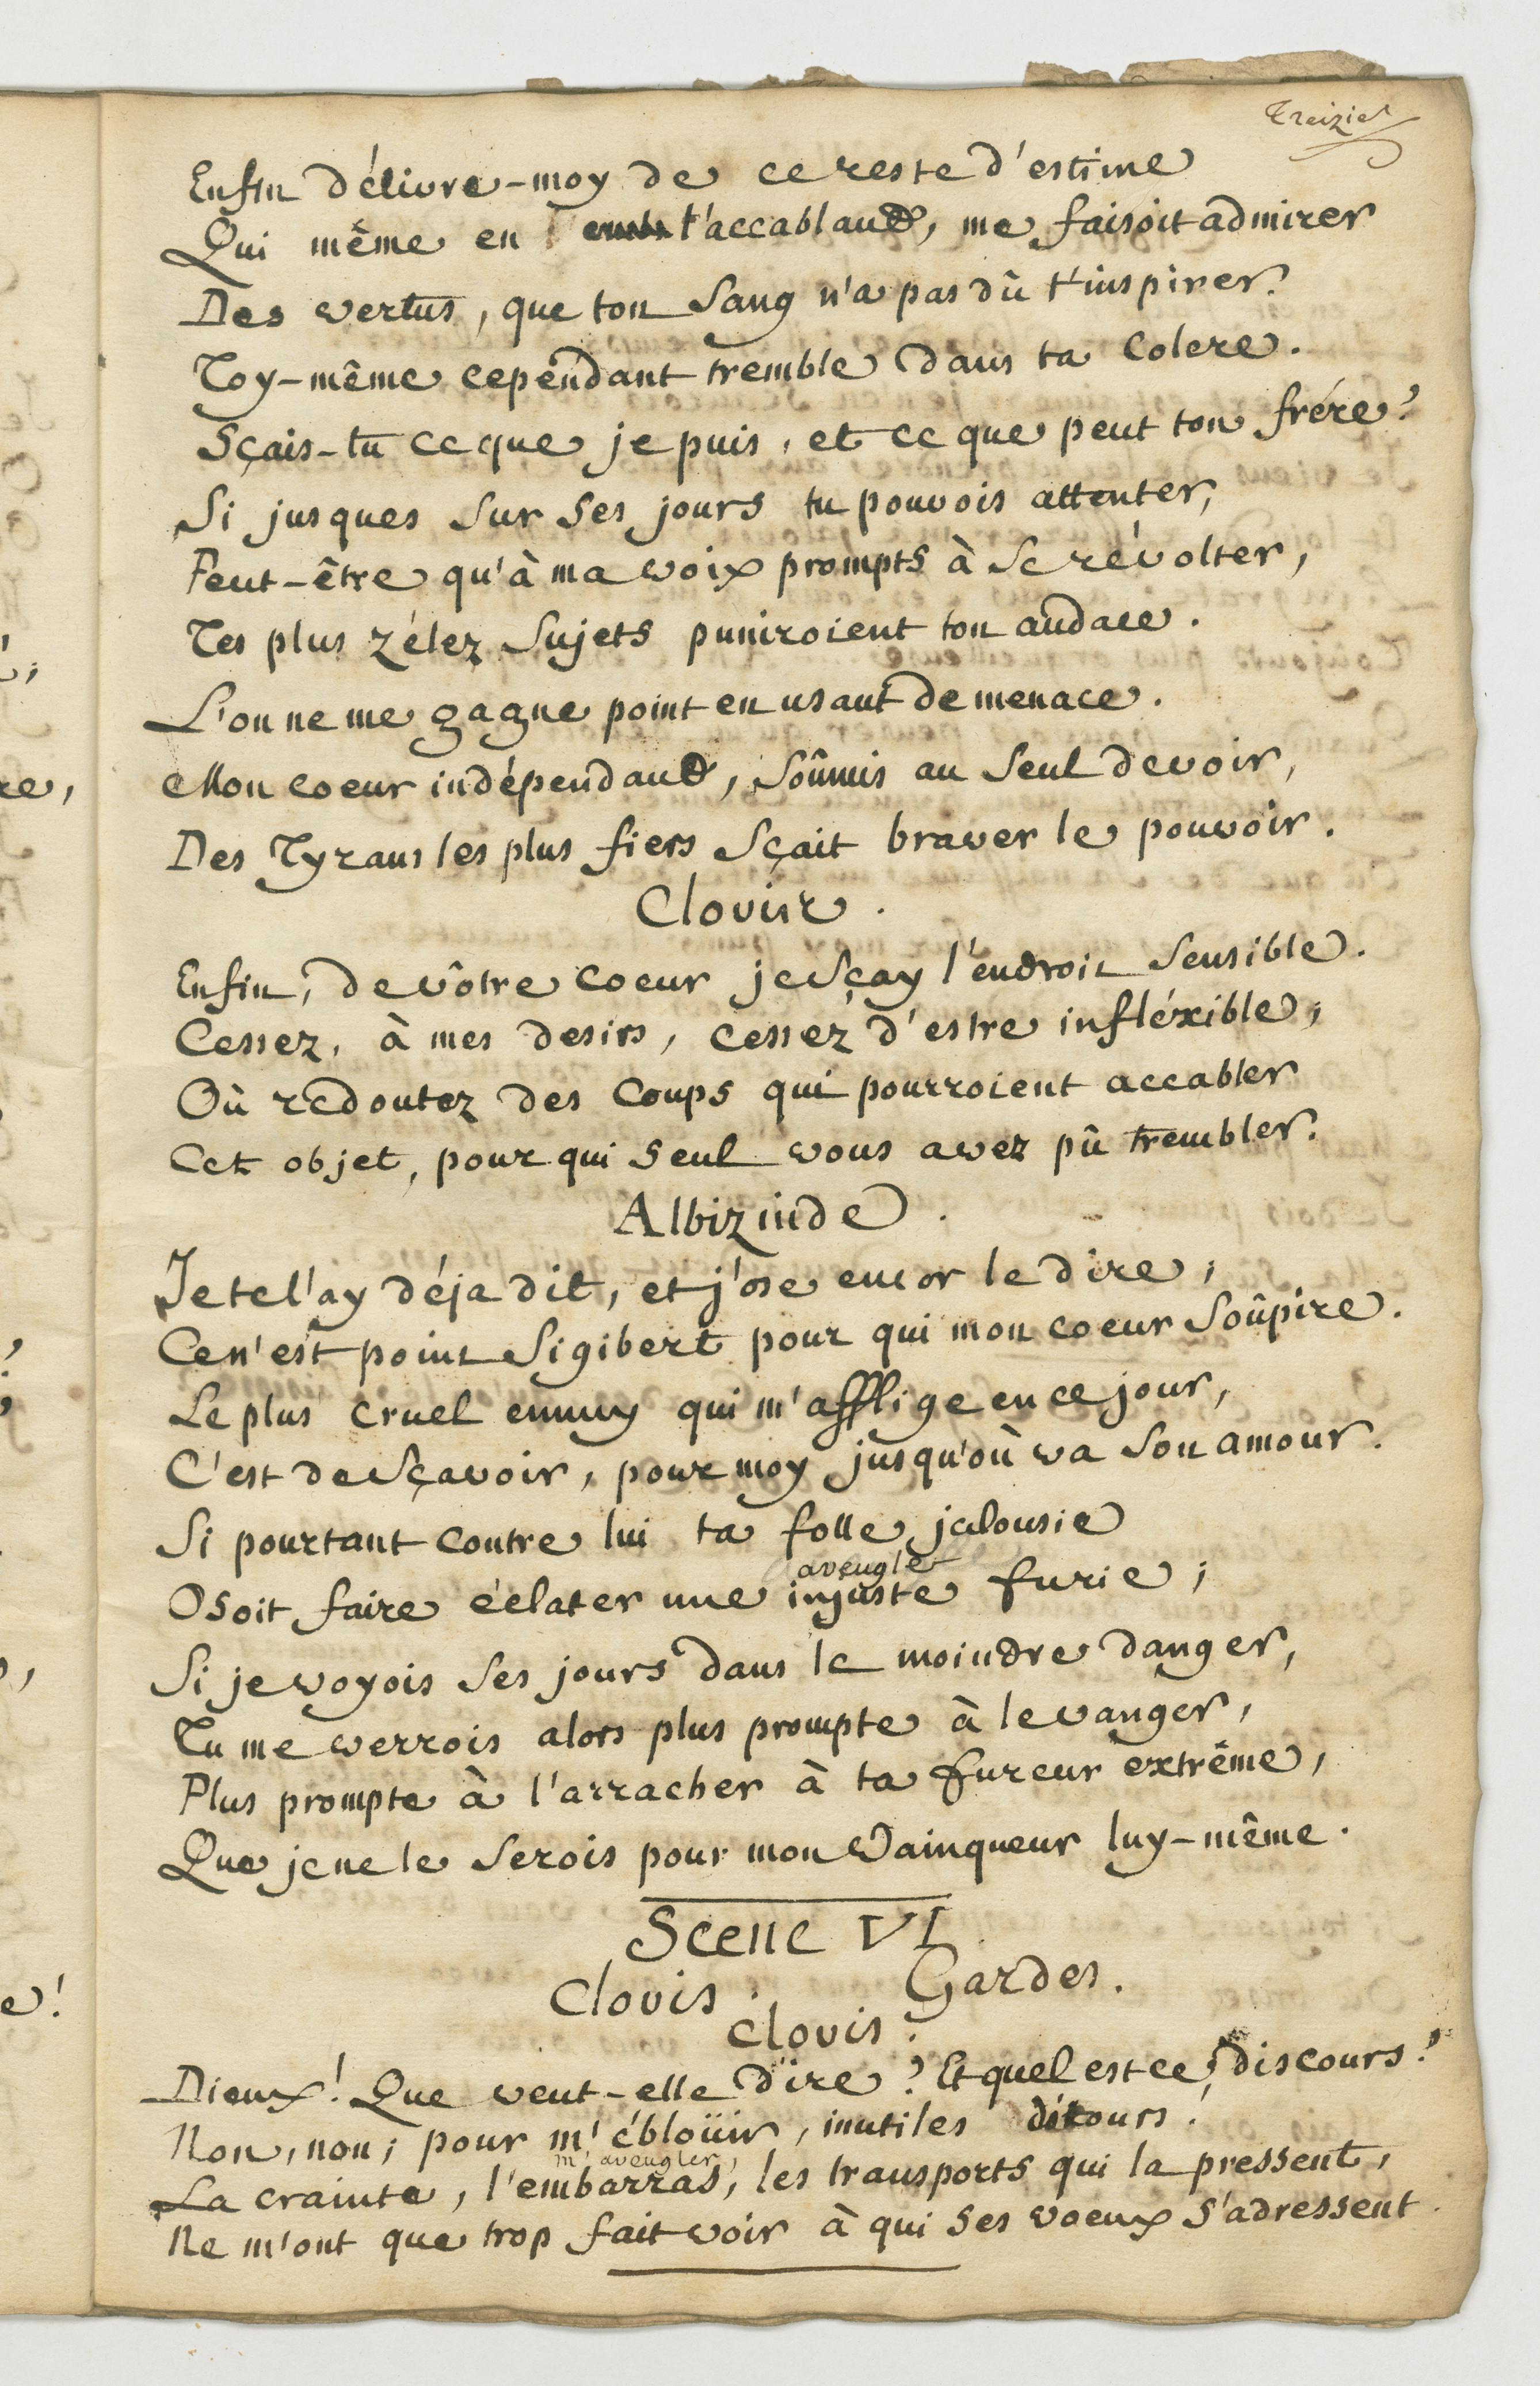 Treizie
Enfin délivre-moy de ce reste d'estime
Qui même en t'accablant, me faisoit admirer
Des vertus, que ton sang n'a pas dû t'inspirer.
Toy-même cependant tremble dans ta colere.
Sçais-tu ce que je puis, et ce que peut ton frére?
Si jusques sur ses jours tu pouvois attenter,
Peut-être qu'à ma voix prompts à se révolter,
Tes plus zélez sujets puniroient ton audace.
L'on ne me gagne point en usant de menace.
Mon coeur indépendant, soûmis au seul devoir,
Des Tyrans les plus fiers sçait braver le pouvoir.
Clovis.
Enfin, de vôtre coeur je sçay l'endroit sensible.
Cessez, à mes desirs, cessez d'estre infléxible,
Où redoutez des coups qui pourroient accabler
Cet objet, pour qui seul vous avez pû trembler.
Albizinde.
Je te l'ay déja dit, et j'ose encor le dire,
Ce n'est point Sigibert pour qui mon coeur soûpire.
Le plus cruel ennuy qui m'afflige en ce jour,
C'est de sçavoir, pour moy jusqu'où va son amour.
Si pourtant contre lui ta folle jalousie
aveugle
Osoit faire éclater une injuste furie;
Si je voyois ses jours dans le moindre danger,
Tu me verrois alors plus prompte à le vanger,
Plus prompte à l'arracher à ta fureur extrême,
Que je ne le serois pour mon Vainqueur luy-même.
Scene VI
Clovis. Gardes.
Clovis.
Dieux! Que veut-elle dire? Et quel est ce discours?
Non, non, pour m'ébloüir, inutiles détours.
m'aveugler,
La crainte, l'embarras, les transports qui la pressent,
Ne m'ont que trop fait voir à qui ses voeux s'adressent.